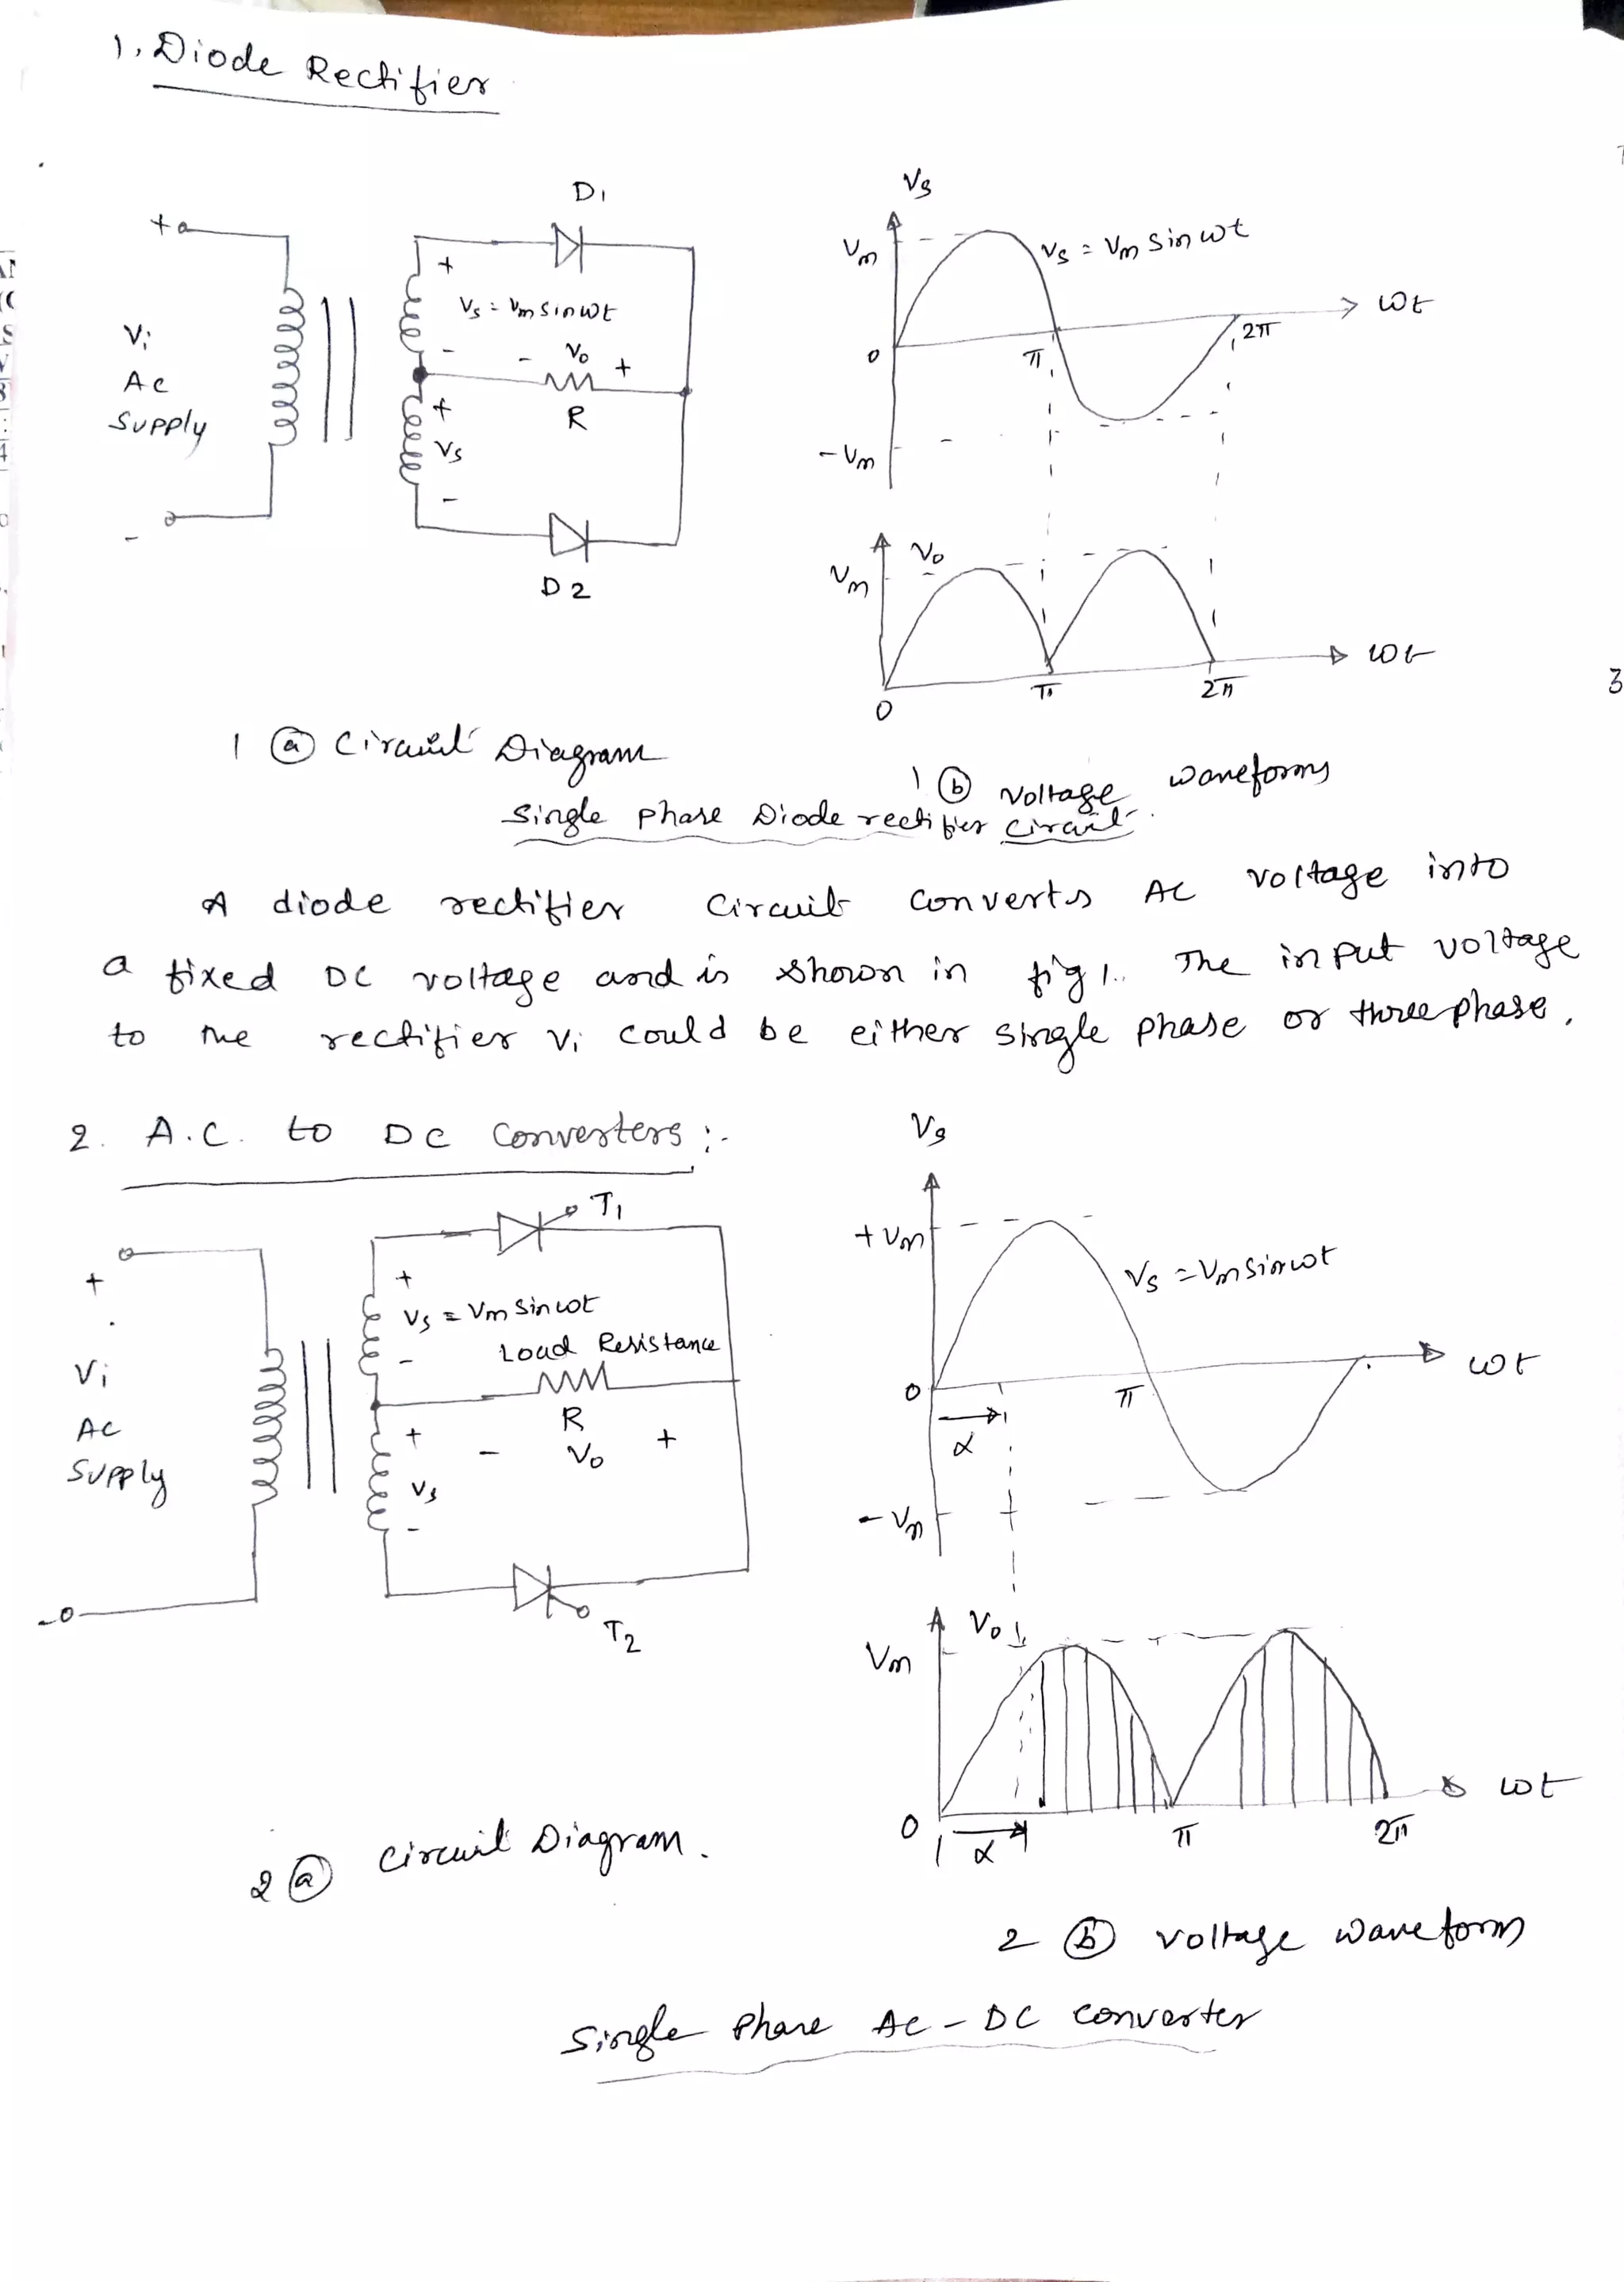 1. Diode Rectifier
D1
+
+
Vs = Vm sinωt
Vi
AC
Supply
-
- Vo +
R
+
Vs
-
-
D2
Vs
Vm
Vs = Vm sin ωt
ωt
0
π
2π
-Vm
Vo
Vm
ωt
0
π
2π
1 (a) Circuit Diagram
1 (b) Voltage waveforms
Single phase Diode rectifier circuit.
A diode rectifier circuit converts AC voltage into
a fixed DC voltage and is shown in fig 1.. The input voltage
to the rectifier Vi could be either single phase or three phase.
2. A.C. to DC Converters :-
T1
+
+
Vs = Vm sin ωt
-
Load Resistance
Vi
AC
Supply
R
+
- Vo +
Vs
-
-
T2
Vs
+Vm
Vs = Vm sinωt
ωt
0
π
α
-Vm
Vo
Vm
ωt
0
α
π
2π
2 (a) Circuit Diagram.
2 (b) Voltage waveform
Single Phase AC - DC converter
3